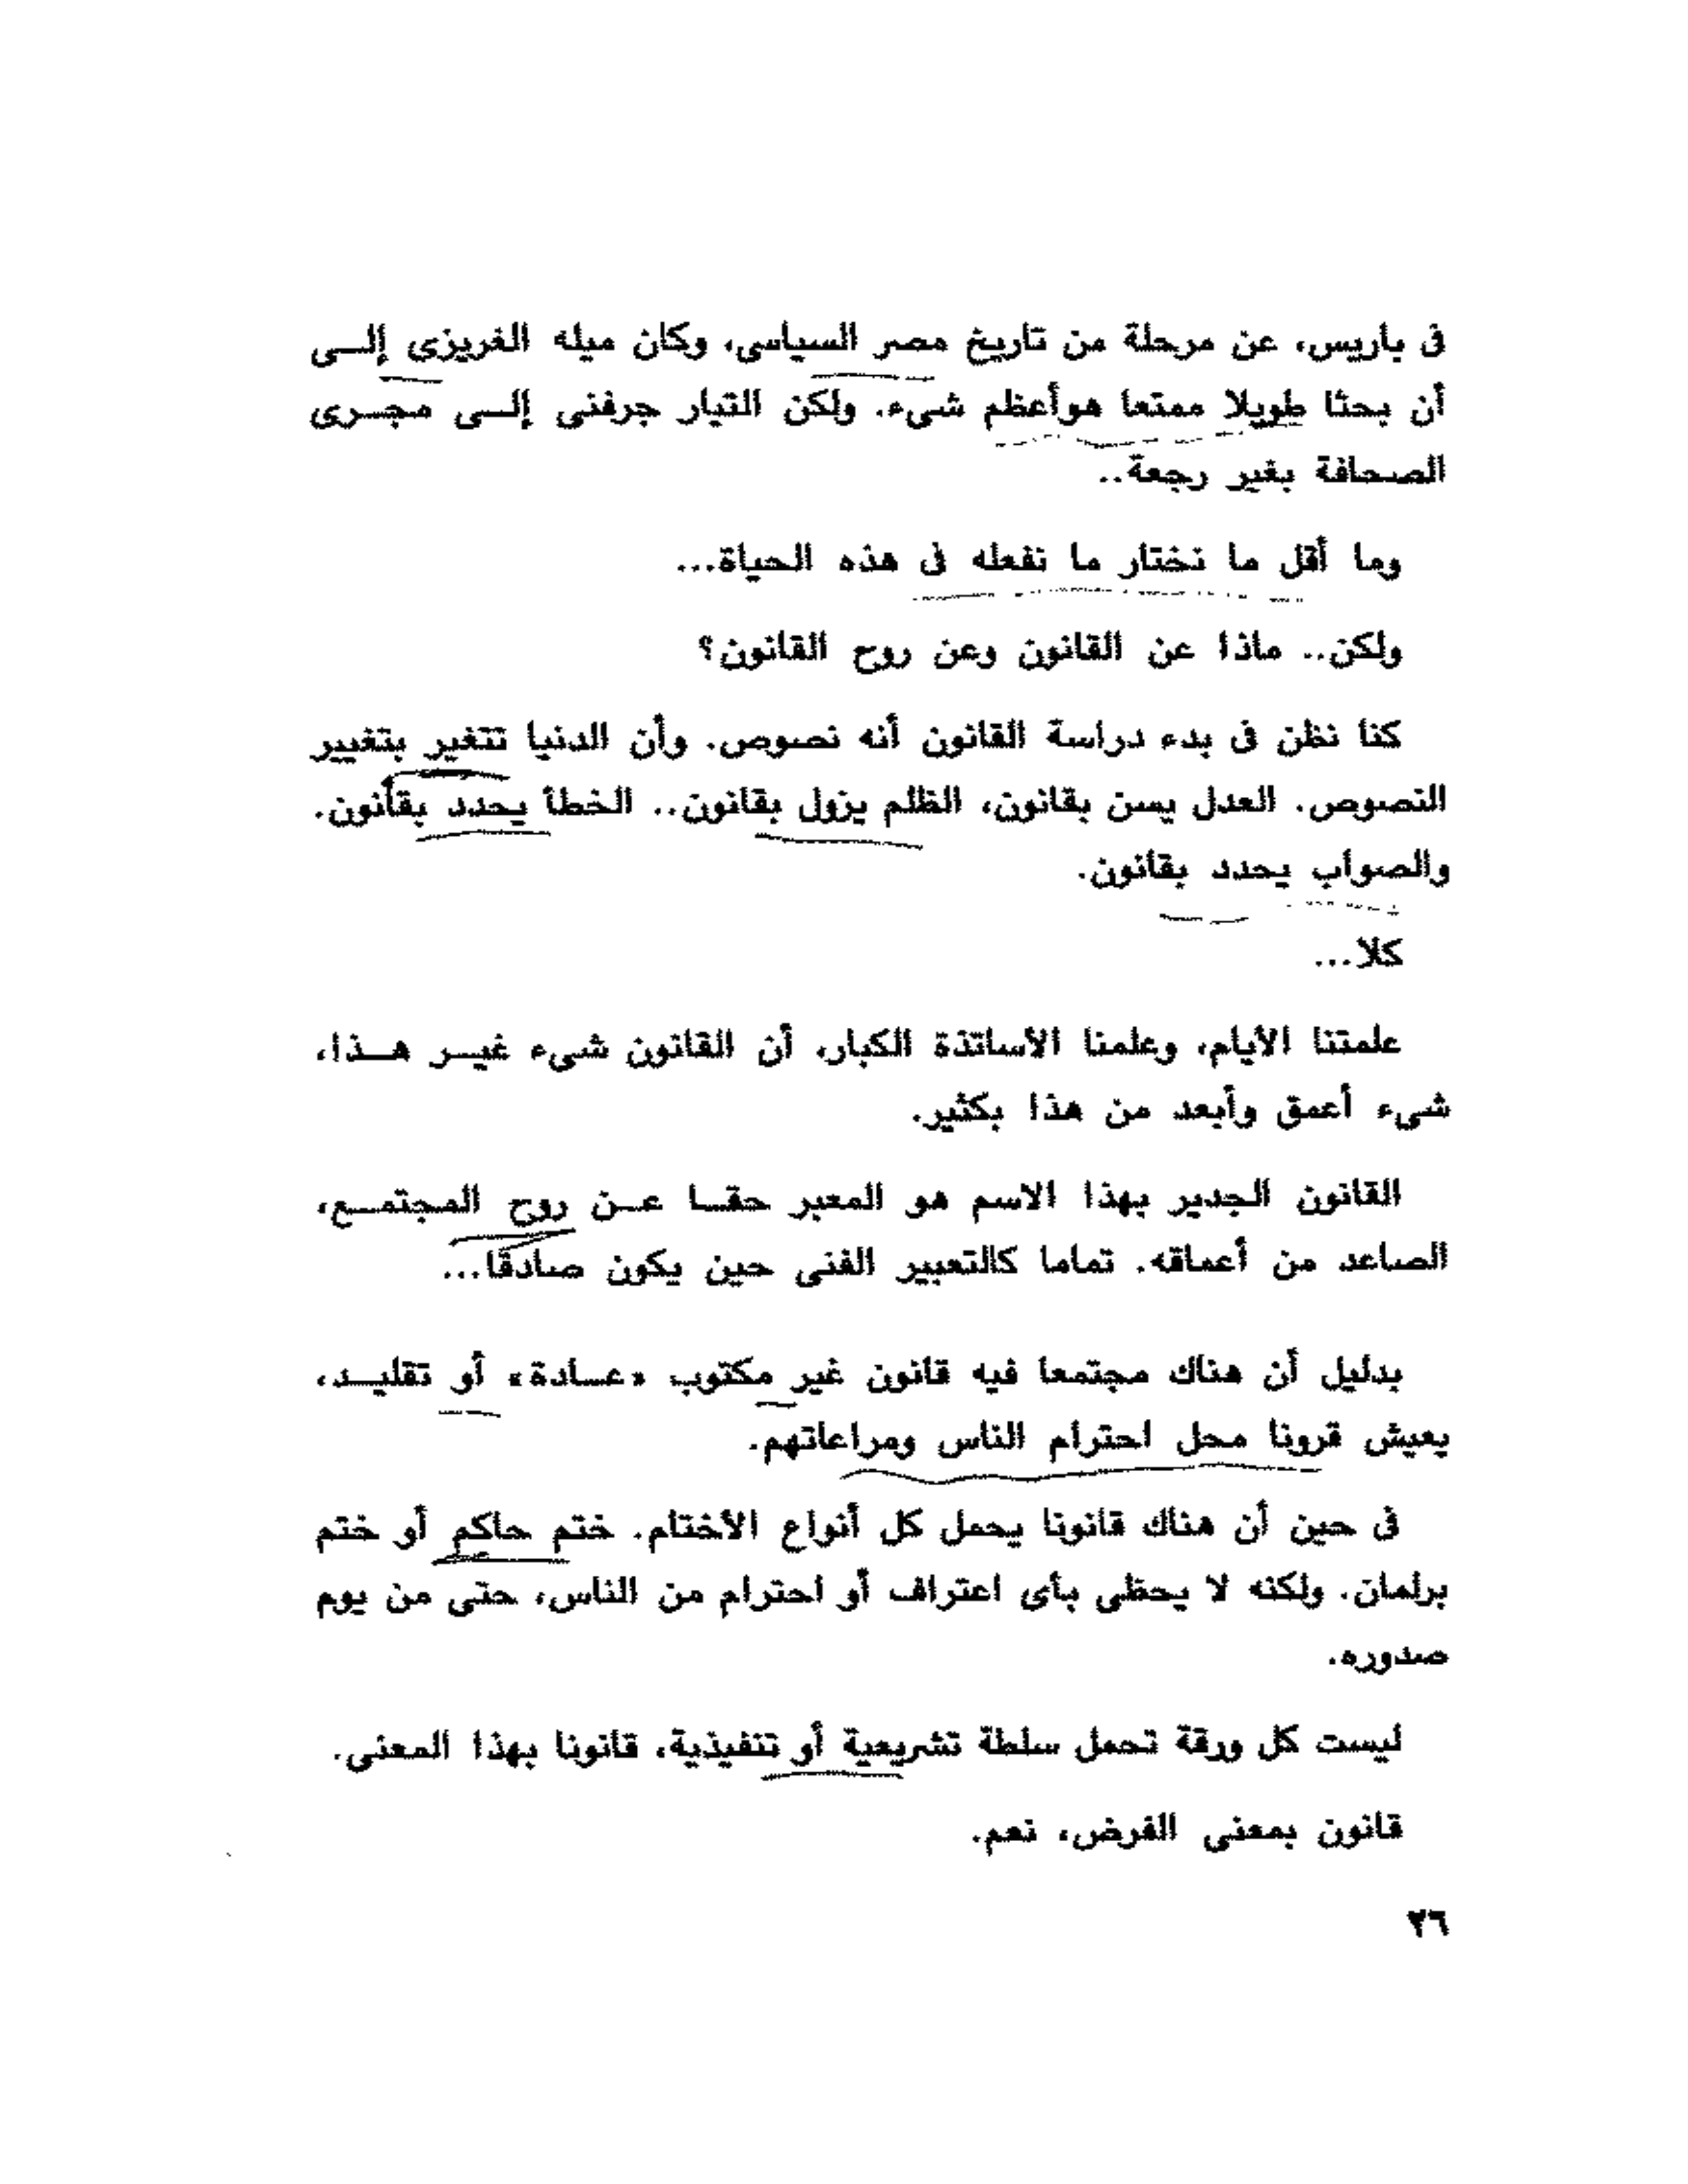 فى باريس، عن مرحلة من تاريخ مصر السياسى، وكان ميله الغريزى إلـى
أن بحثا طويلا ممتعا هو أعظم شىء. ولكن التيار جرفنى إلـى مجـرى
الصحافة بغير رجعة..
وما أقل ما نختار ما نفعله فى هذه الحياة...
ولكن.. ماذا عن القانون وعن روح القانون؟
كنا نظن فى بدء دراسة القانون أنه نصوص. وأن الدنيا تتغير بتغيير
النصوص. العدل يسن بقانون، الظلم يزول بقانون.. الخطأ يحدد بقانون.
والصواب يحدد بقانون.
كلا...
علمتنا الأيام، وعلمنا الأساتذة الكبار، أن القانون شىء غيـر هـذا،
شىء أعمق وأبعد من هذا بكثير.
القانون الجدير بهذا الاسم هو المعبر حقـا عـن روح المجتمـع،
الصاعد من أعماقه. تماما كالتعبير الفنى حين يكون صادقا...
بدليل أن هناك مجتمعا فيه قانون غير مكتوب «عـادة» أو تقليـد،
يعيش قرونا محل احترام الناس ومراعاتهم.
فى حين أن هناك قانونا يحمل كل أنواع الأختام. ختم حاكم أو ختم
برلمان. ولكنه لا يحظى بأى اعتراف أو احترام من الناس، حتى من يوم
صدوره.
ليست كل ورقة تحمل سلطة تشريعية أو تنفيذية، قانونا بهذا المعنى.
قانون بمعنى الفرض، نعم.
٢٦